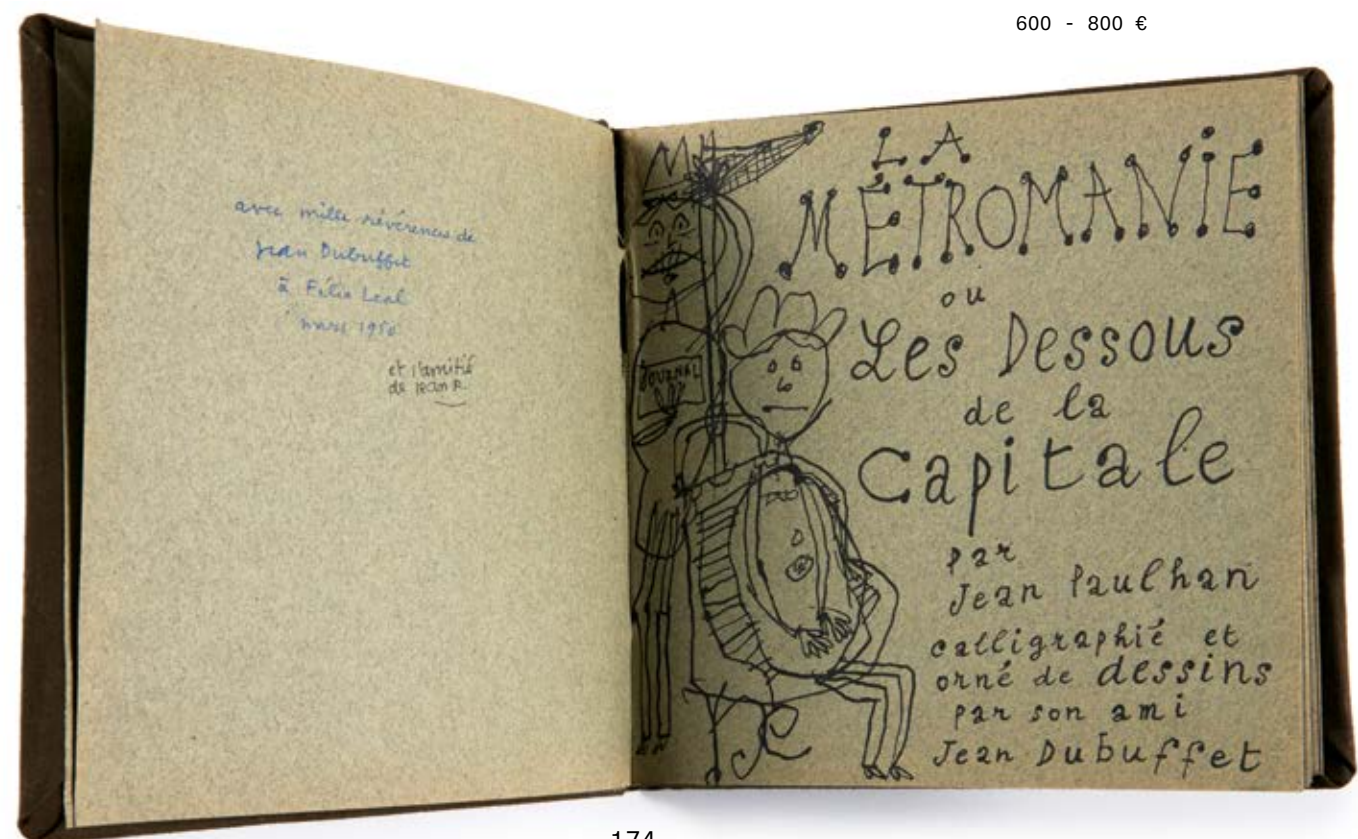 600 - 800 €
avec mille révérences de
Jean Dubuffet
à Félix Leal
mars 1950
et l'amitié
de Jean P.
JOURNAL
LA
MÉTROMANIE
ou
Les Dessous
de la
Capitale
par
Jean Paulhan
calligraphié et
orné de dessins
par son ami
Jean Dubuffet
174